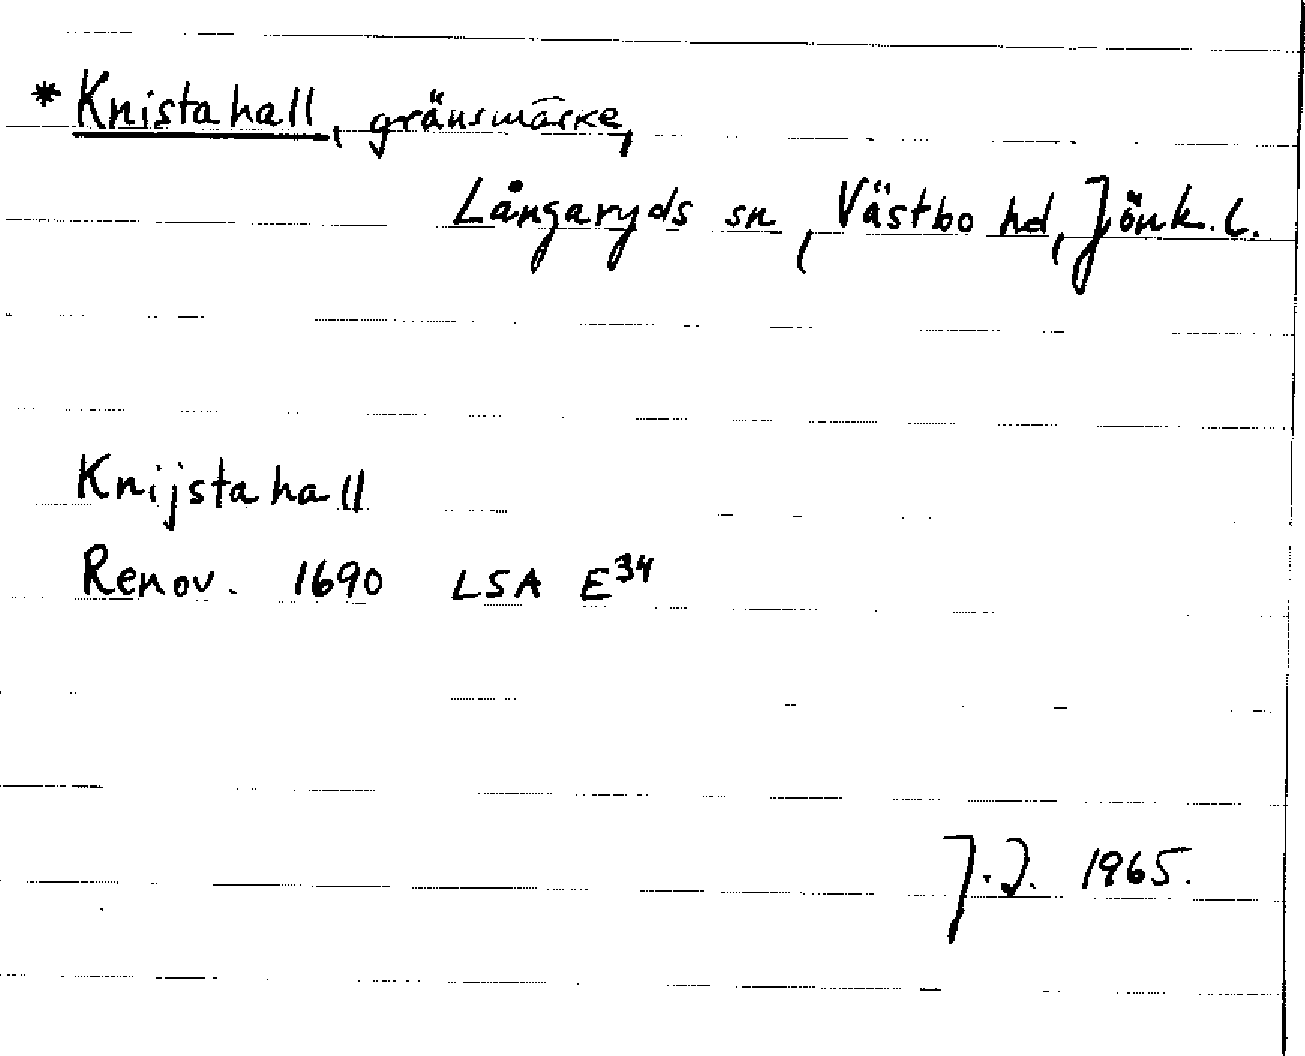 * Knistahall, gränsmärke,
Långaryds sn, Västbo hd, Jönk. l.
Knijstahall
Renov. 1690 LSA E³⁴
J.J. 1965.